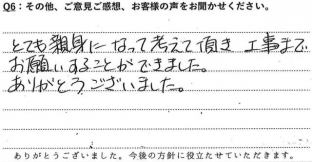 Q6：その他、ご意見ご感想、お客様の声をお聞かせください。
とても親身になって考えて頂き 工事まで
お願いすることができました。
ありがとうございました。
ありがとうございました。今後の方針に役立たせていただきます。